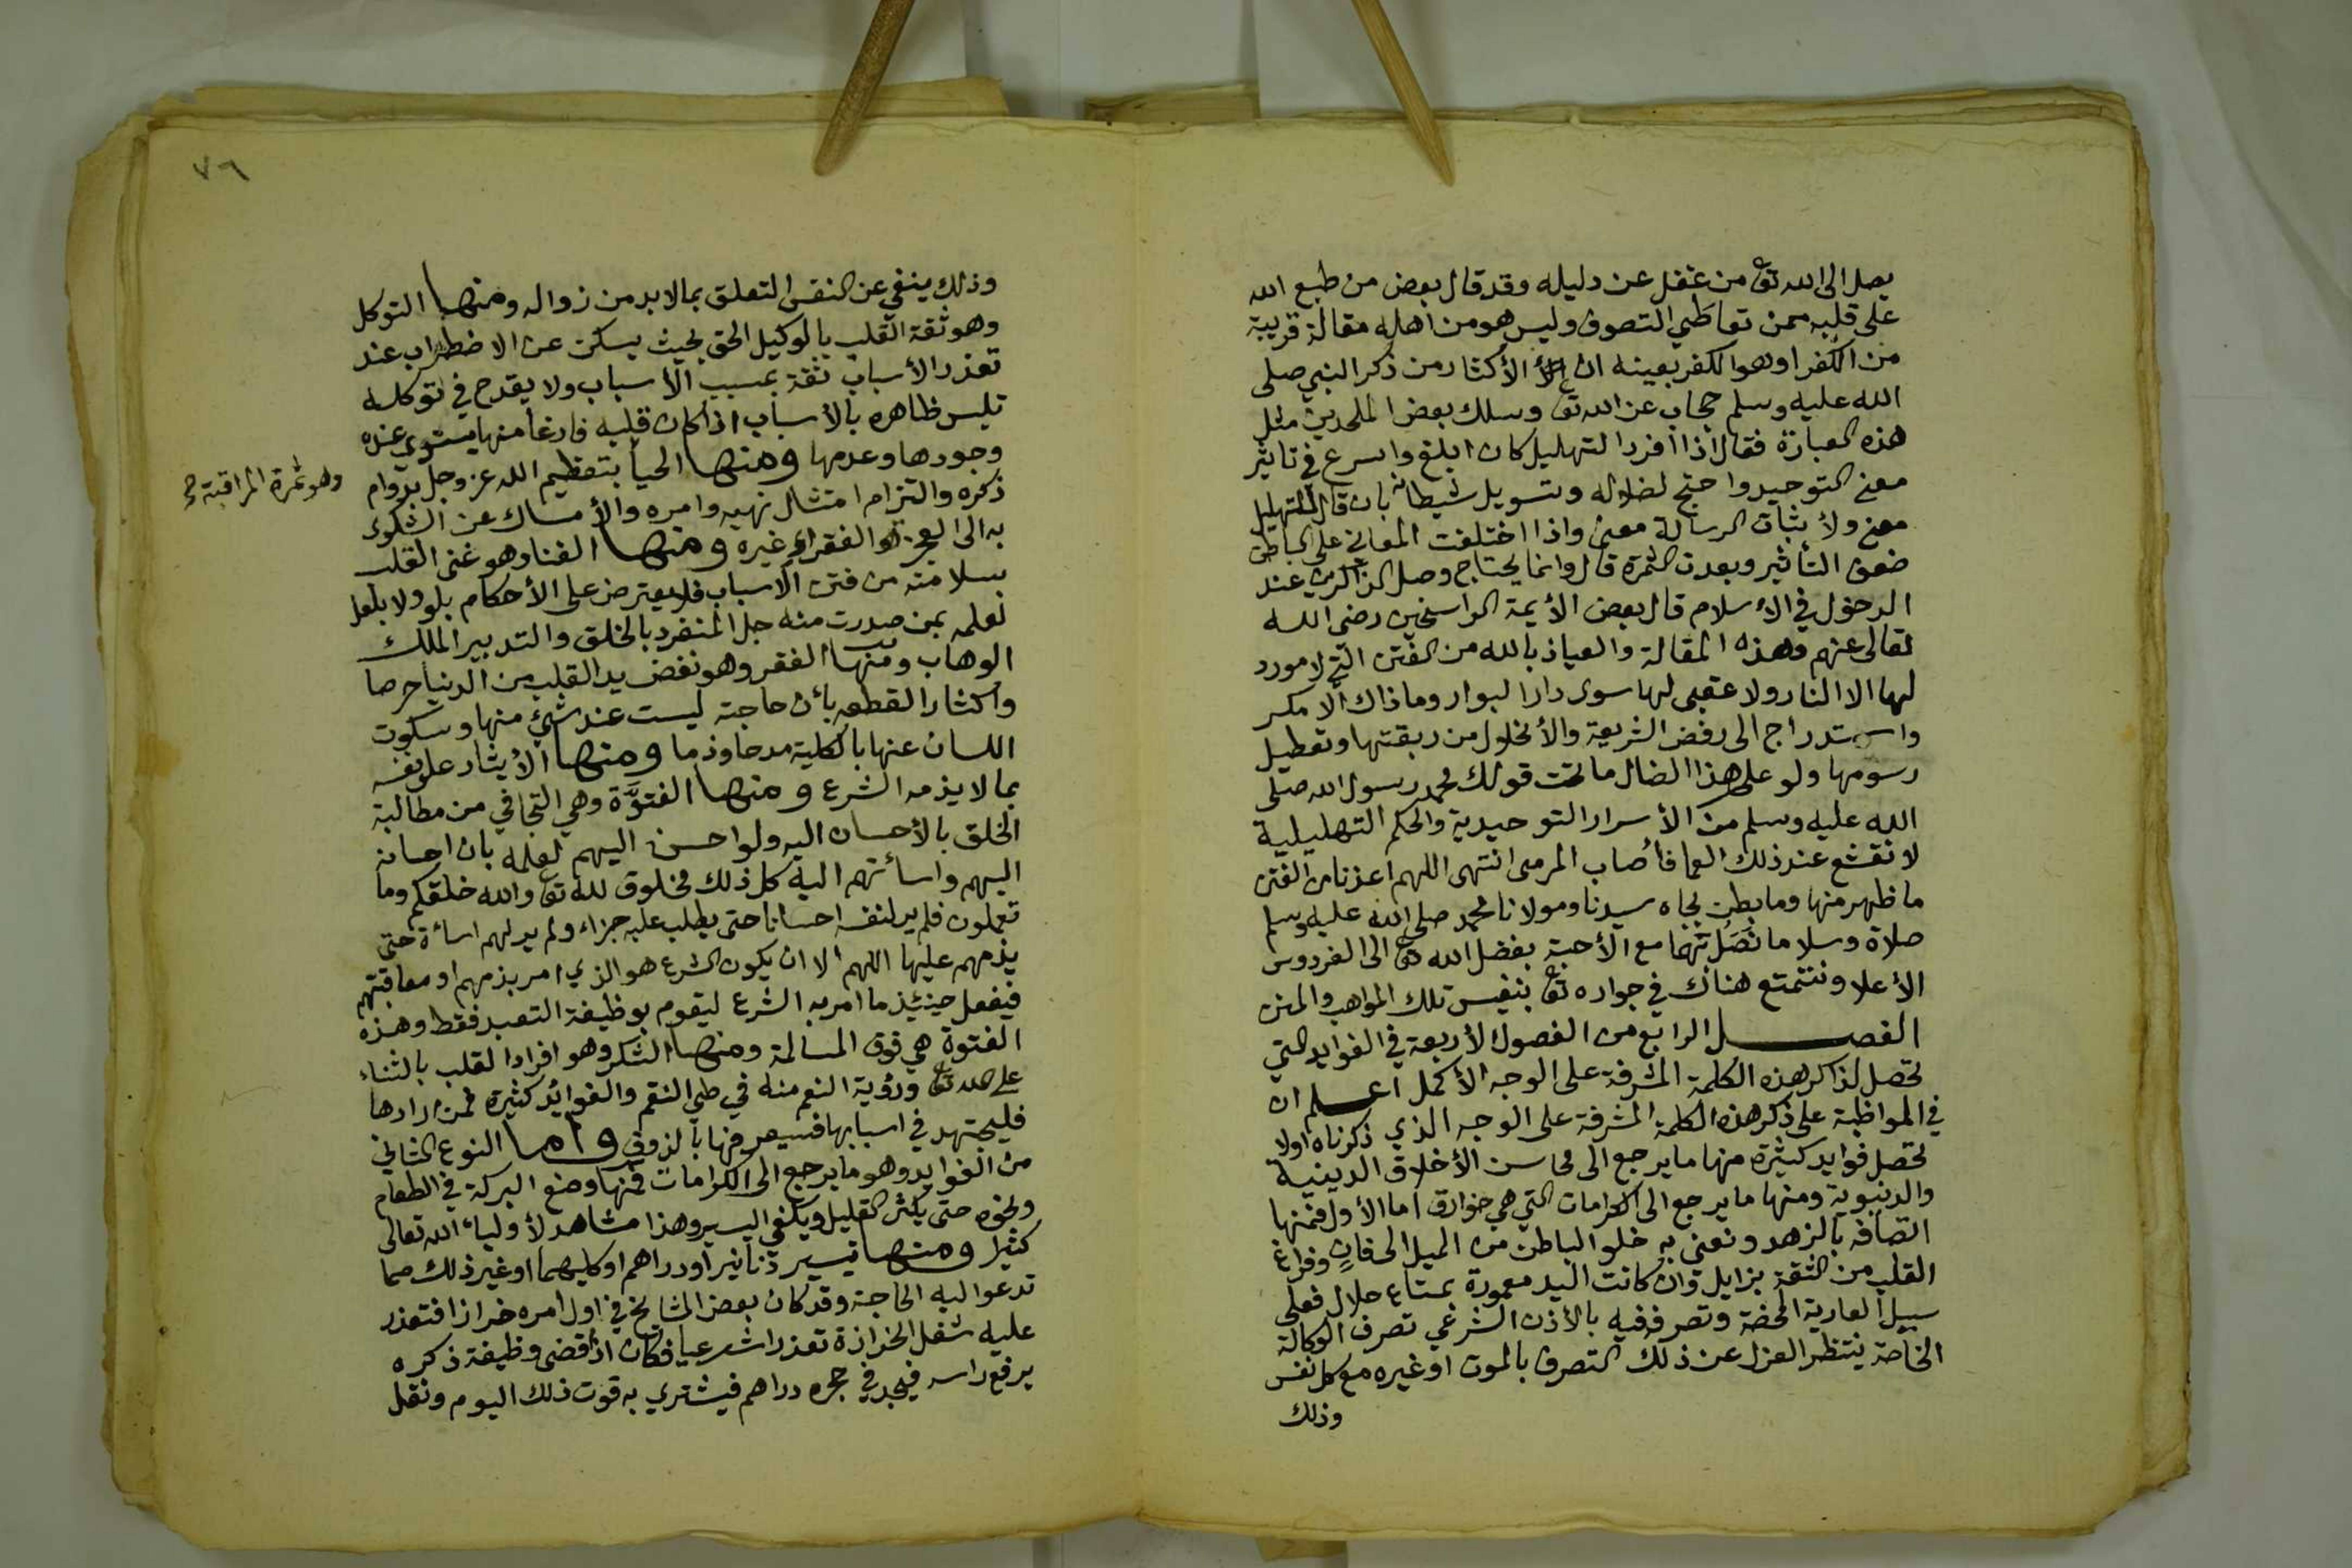 يصل الى الله تع من غفل عن دليله وقد قال بعض من طبع الله
على قلبه ممن تعاطي التصوف وليس هو من اهله مقالة قريبة
من الكفر او هو الكفر بعينه ان الأكثار من ذكر النبي صلى
الله عليه وسلم حجاب عن الله تع وسلك بعض الملحدين مثل
هذه العبارة فقال اذا افرد التهليل كان ابلغ واسرع في تاثير
معنى التوحيد واحتج لضلاله وتسويل شيطانه بان قال للتهليل
معنى ولأثبات الرسالة معنى واذا اختلفت المعاني على الباطن
ضعف التأثير وبعدت الثمرة قال وانما يحتاج وصل الذكرين عند
الدخول في الأسلام قال بعض الأيمة الراسخين رضى الله
تعالى عنهم وهذه المقالة والعياذ بالله من الفتن التي لا مورد
لها الا النار ولا عقبى لها سوى دار البوار وما ذاك الا مكر
واستدراج الى رفض الشريعة والأنخلال من ربقتها وتعطيل
رسومها ولو على هذا الضال ما تحت قولك محمد رسول الله صلى
الله عليه وسلم من الأسرار التوحيدية والحكم التهليلية
لانقشع عند ذلك العما فأصاب المرمى انتهى اللهم اعذنا من الفتن
ما ظهر منها وما بطن بجاه سيدنا ومولانا محمد صلى الله عليه وسلم
صلاة وسلاما نَصَل بهما مع الأحبة بفضل الله تع الى الفردوس
الأعلا ونتمتع هناك في جواره تع بنفيس تلك المواهب والمنن
الفصل الرابع من الفصول الأربعة في الفوايد التي
تحصل لذاكر هذه الكلمة المشرفة على الوجه الأكمل اعلم ان
في المواظبة على ذكر هذه الكلمة المشرفة على الوجه الذي ذكرناه اولا
تحصل فوايد كثيرة منها ما يرجع الى محاسن الأخلاق الدينية
والدنيوية ومنها ما يرجع الى الكرامات التي هي خوارق اما الأول فمنها
اتصافه بالزهد ونعني به خلو الباطن من الميل الى فانٍ وفراغ
القلب من الثقة بزايل وان كانت اليد معمورة بمتاع حلال فعلى
سبيل العارية المحضة وتصرفه فيه بالأذن الشرعي تصرف الوكالة
الخاصة ينتظر العزل عن ذلك التصرف بالموت او غيره مع كل نفس
وذلك
٧٦
وذلك ينفي عن النفس التعلق بما لا بد من زواله ومنها التوكل
وهو ثقة القلب بالوكيل الحق بحيث يسكن عن الاضطراب عند
تعذر الأسباب ثقة بمسبب الأسباب ولا يقدح في توكله
تلبس ظاهره بالأسباب اذا كان قلبه فارغا منها يستوي عنده
وجودها وعدمها ومنها الحيأ بتعظيم الله عز وجل بدوام
وهو ثمرة المراقبة صح
ذكره والتزام امتثال نهيه وامره والأمساك عن الشكوى
به الى العجزة والفقراء غيره ومنها الغنا وهو غنى القلب
بسلامته من فتن الأسباب فلا يعترض على الأحكام بلو ولا بلعل
لعلمه بمن صدرت منه جل المنفرد بالخلق والتدبير الملك
الوهاب ومنها الفقر وهو نفض يد القلب من الدنيا حرصا
واكثارا لقطعه بأن حاجته ليست عند شيئ منها وسكوت
اللسان عنها بالكلية مدحا وذما ومنها الأيثار على نفسه
بما لا يذمه الشرع ومنها الفتوَّة وهي التجافي من مطالبة
الخلق بالأحسان اليه ولو احسن اليهم لعلمه بان احسانه
اليهم واسأتهم اليه كل ذلك مخلوق لله تع والله خلقكم وما
تعملون فلم ير لنفسه احسانا حتى يطلب عليه جزاء ولم ير لهم اسأة حتى
يذمهم عليها اللهم الا ان يكون الشرع هو الذي امر بذمهم او معاقبتهم
فيفعل حينئذ ما امر به الشرع ليقوم بوظيفة التعبد فقط وهذه
الفتوة هي فوق المسالمة ومنها الشكر وهو افراد القلب بالثناء
على الله تع ورؤية النعم منه في طي النقم والفوائد كثيرة فمن ارادها
فليجتهد في اسبابها فسيعرفها بالذوق واما النوع الثاني
من الفوايد وهو ما يرجع الى الكرامات فمنها وضع البركة في الطعام
ونحوه حتى يكثر القليل ويكفي اليسير وهذا مشاهد لأولياء الله تعالى
كثيرا ومنها تيسير دنانير او دراهم او كليهما او غير ذلك مما
تدعوا اليه الحاجة وقد كان بعض المشايخ في اول امره خرازا فتعذر
عليه شغل الخرازة تعذرا شرعيا فكان اذا قضى وظيفة ذكره
يرفع راسه فيجد في حجره دراهم فيشتري به قوت ذلك اليوم ونقل